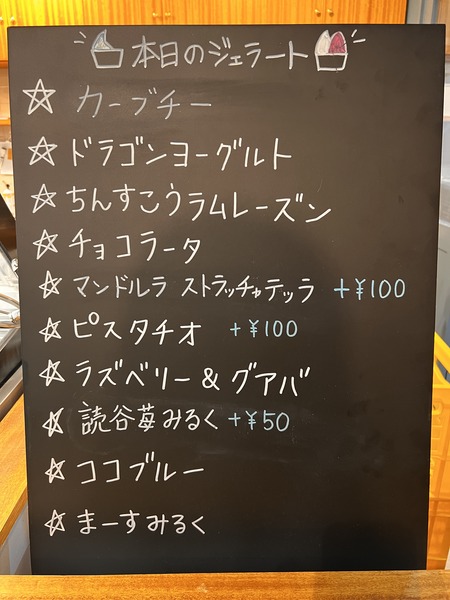 本日のジェラート
☆ カーブチー
☆ ドラゴンヨーグルト
☆ ちんすこうラムレーズン
☆ チョコラータ
☆ マンドルラ ストラッチャテッラ +¥100
☆ ピスタチオ +¥100
☆ ラズベリー & グアバ
☆ 読谷苺みるく +¥50
☆ ココブルー
☆ まーすみるく